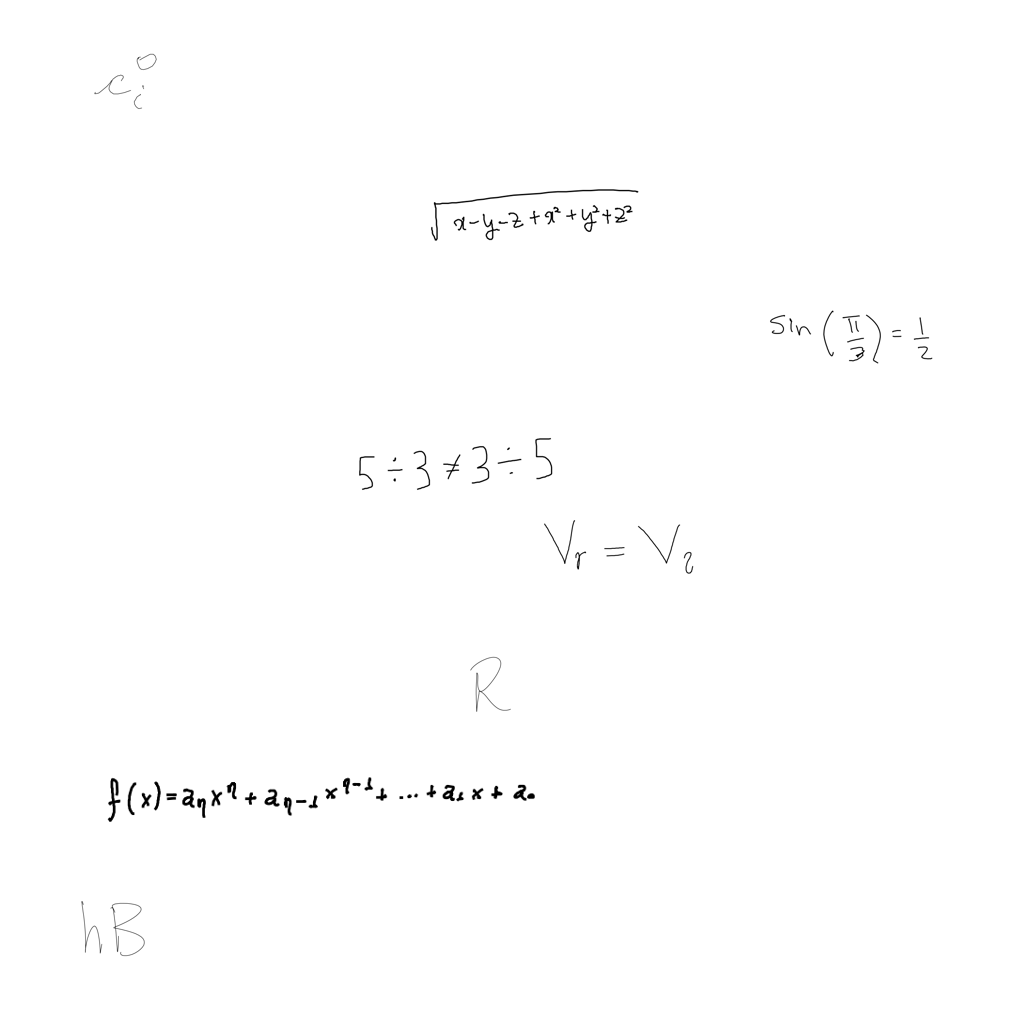 c_i^0
√(x-y-z+x²+y²+z²)
sin(π/3) = 1/2
5÷3≠3÷5
V_r = V_2
R
f(x)=a_n x^n + a_{n-1} x^{n-1} + ... + a_1 x + a_0
hB